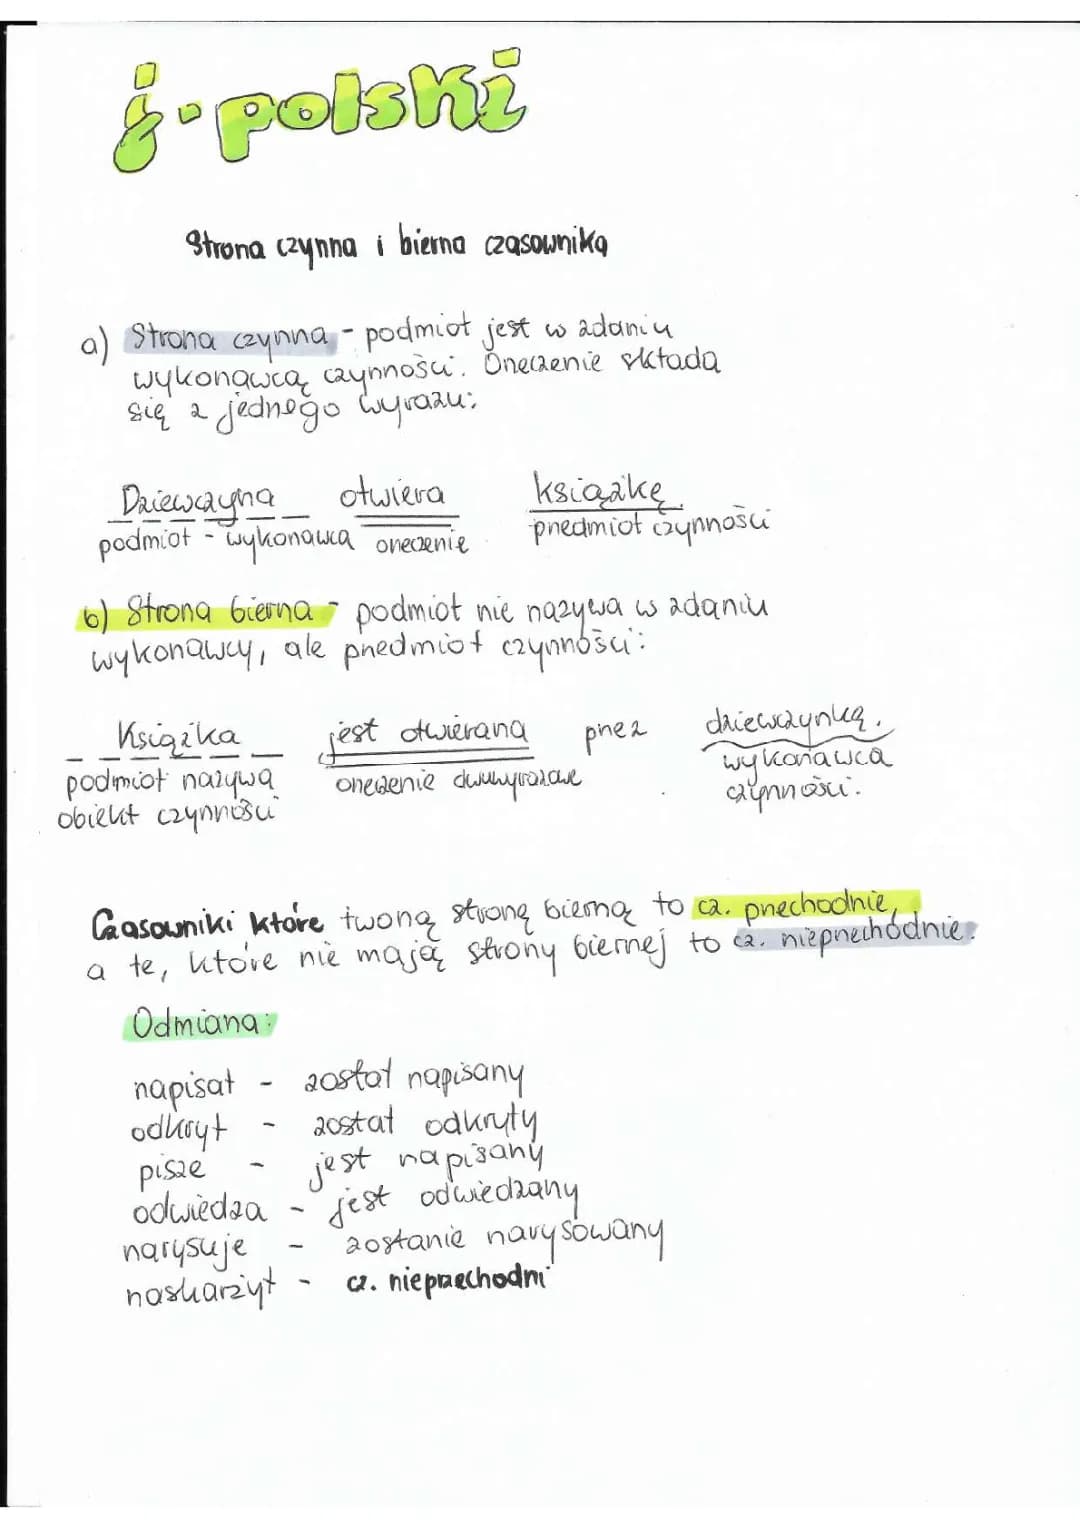 j. polski
Strona czynna i bierna czasownika
a) Strona czynna - podmiot jest w zdaniu
wykonawcą czynności. Orzeczenie składa
się z jednego wyrazu:
Dziewczyna otwiera książkę
podmiot - wykonawca orzeczenie przedmiot czynności
b) Strona bierna - podmiot nie nazywa w zdaniu
wykonawcy, ale przedmiot czynności:
Książka jest otwierana przez dziewczynką.
podmiot nazywa orzeczenie dwuwyrazowe wykonawca
obiekt czynności czynności.
Czasowniki które tworzą stronę bierną to cz. przechodnie,
a te, które nie mają strony biernej to cz. nieprzechodnie.
Odmiana:
napisał - został napisany
odkrył - został odkryty
pisze - jest napisany
odwiedza - jest odwiedzany
narysuje - zostanie narysowany
naskarżył - cz. nieprzechodni